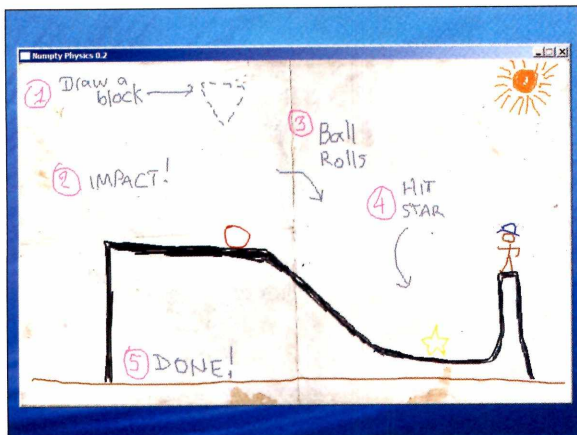 Numpty Physics 0.2
1 Draw a
block
2 IMPACT!
3 Ball
Rolls
4 HIT
STAR
5 DONE!